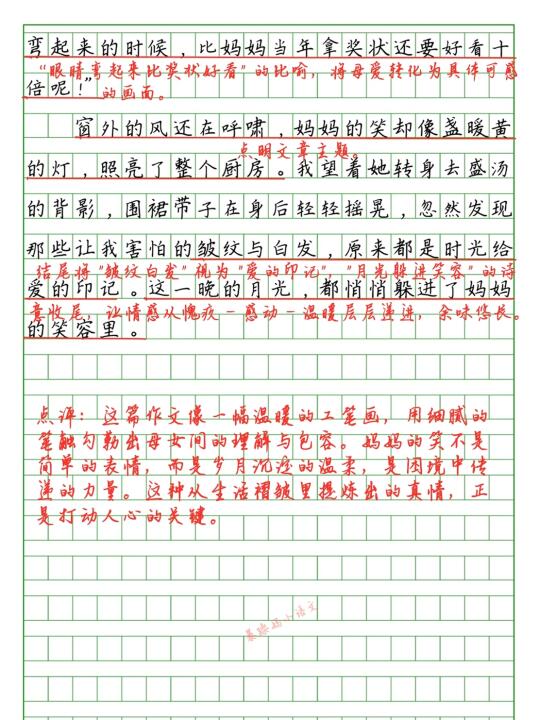 弯起来的时候，比妈妈当年拿奖状还要好看十
“眼睛弯起来比奖状好看”的比喻，将母爱转化为具体可感
倍呢！”
的画面。
窗外的风还在呼啸，妈妈的笑却像盏暖黄
点明文章主题。
的灯，照亮了整个厨房。我望着她转身去盛汤
的背影，围裙带子在身后轻轻摇晃，忽然发现
那些让我害怕的皱纹与白发，原来都是时光给
结尾将“皱纹白发”视为“爱的印记”，“月光躲进笑容”的诗
爱的印记。这一晚的月光，都悄悄躲进了妈妈
意收尾，让情感从愧疚-感动-温暖层层递进，余味悠长。
的笑容里。
点评：这篇作文像一幅温暖的工笔画，用细腻的
笔触勾勒出母女间的理解与包容。妈妈的笑不是
简单的表情，而是岁月沉淀的温柔，是困境中传
递的力量。这种从生活褶皱里提炼出的真情，正
是打动人心的关键。